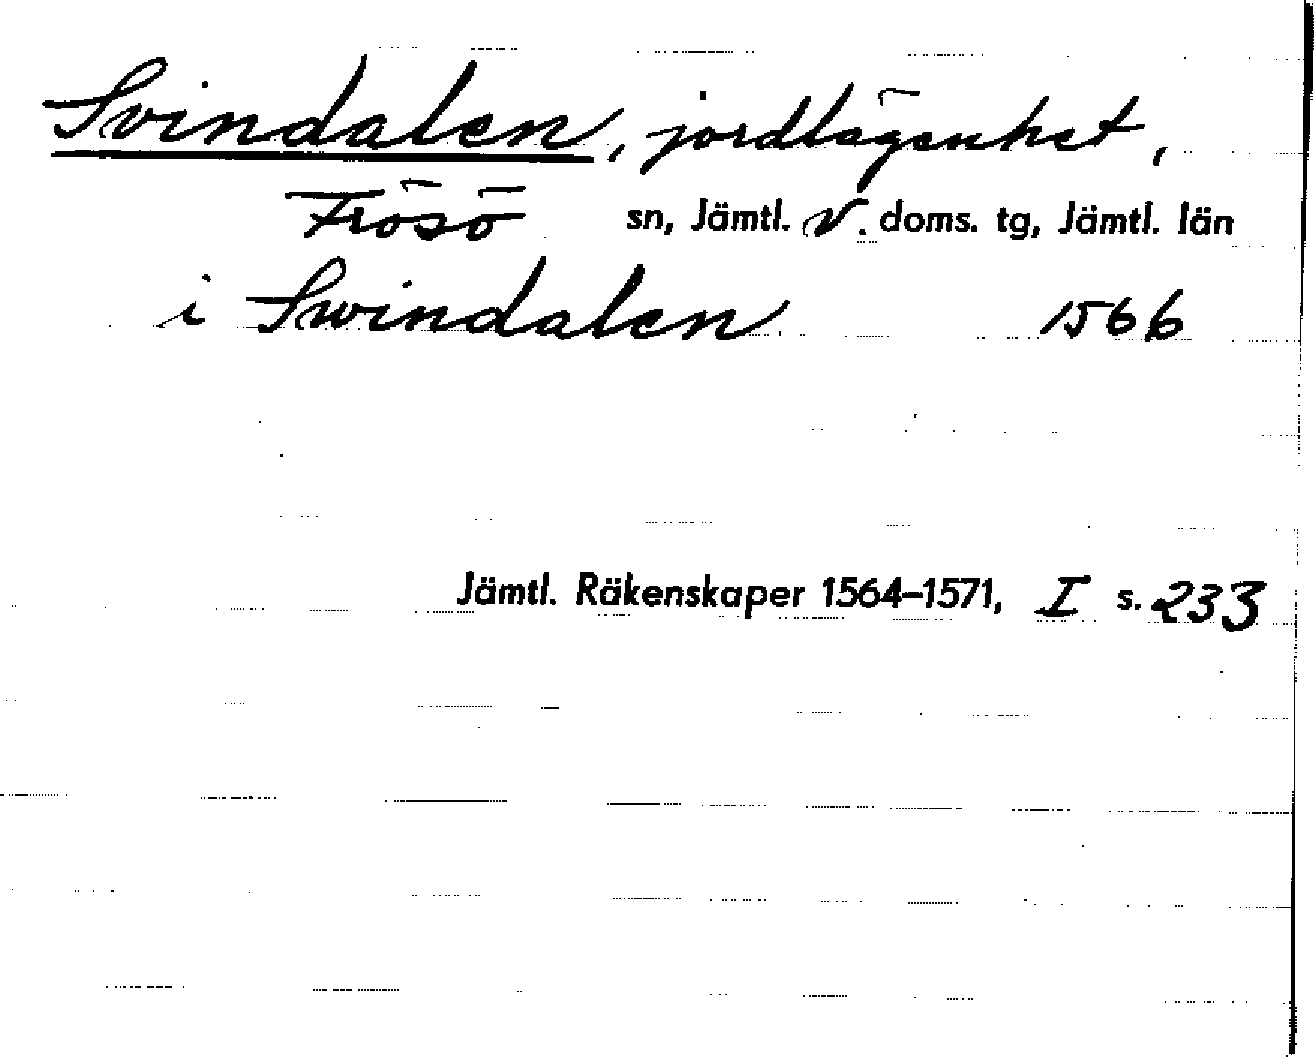 Svindalen, jordlägenhet,
Frösö sn, Jämtl. V. doms. tg, Jämtl. län
i Swindalen 1566
Jämtl. Räkenskaper 1564–1571, I s. 233